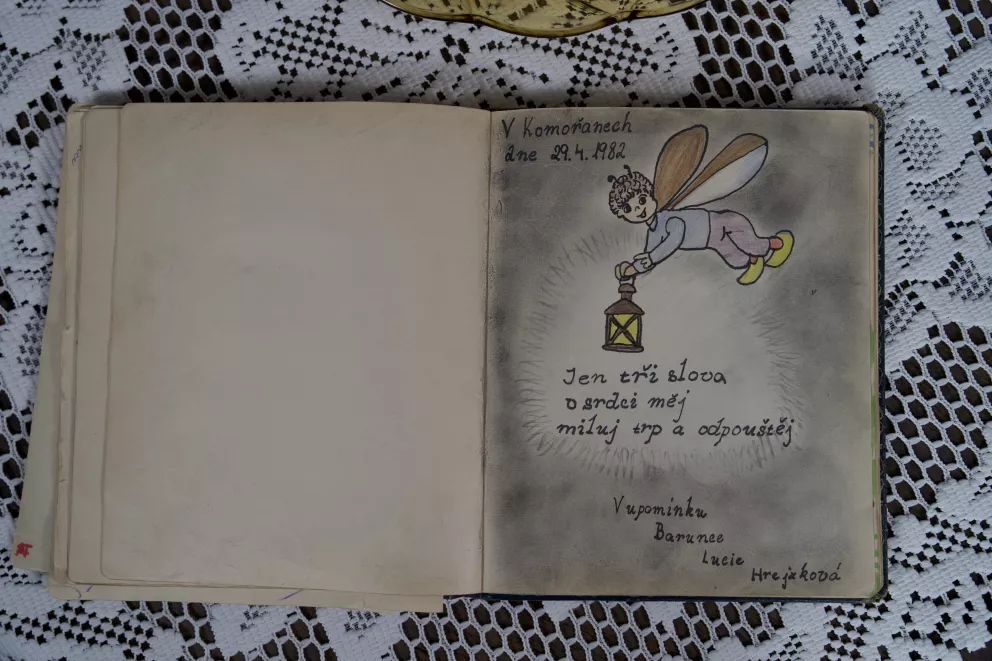 V Komořanech
dne 29.4.1982
Jen tři slova
v srdci měj
miluj trp a odpouštěj
Vupomínku
Barunce
Lucie
Hrejzková